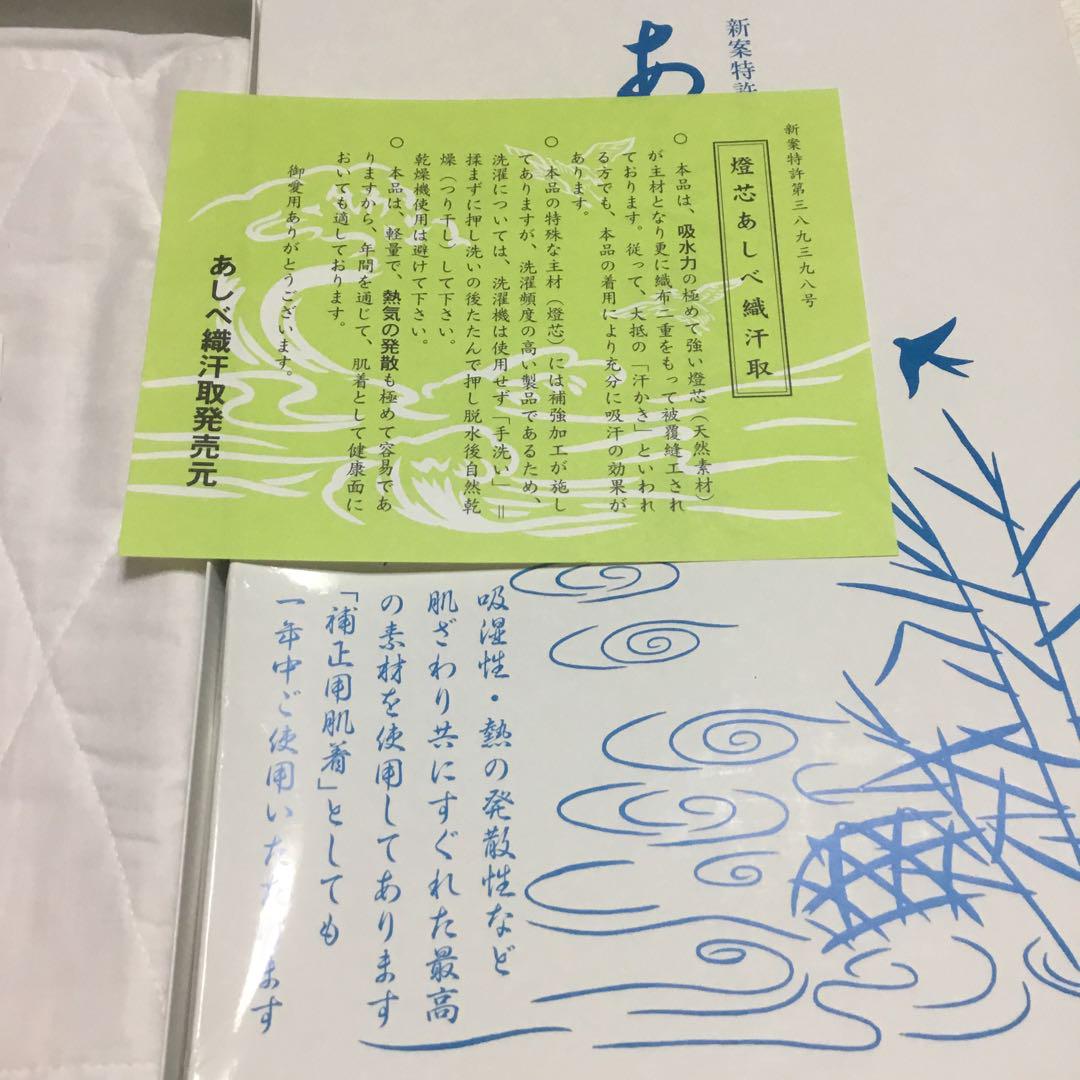 新案特許
あ
新案特許第三八九三九八号
燈芯あしべ織汗取
○ 本品は、吸水力の極めて強い燈芯（天然素材）
が主材となり更に織布二重をもって被覆縫工され
ております。従って、大抵の「汗かき」といわれ
る方でも、本品の着用により充分に吸汗の効果が
あります。
○ 本品の特殊な主材（燈芯）には補強加工が施し
てありますが、洗濯頻度の高い製品であるため、
洗濯については、洗濯機は使用せず「手洗い」＝
揉まずに押し洗いの後たたんで押し脱水後自然乾
燥（つり干し）して下さい。
乾燥機使用は避けて下さい。
○ 本品は、軽量で、熱気の発散も極めて容易であ
りますから、年間を通じて、肌着として健康面に
おいても適しております。
御愛用ありがとうございます。
あしべ織汗取発売元
吸湿性・熱の発散性など
肌ざわり共にすぐれた最高
の素材を使用してあります
「補正用肌着」としても
一年中ご使用いただ ます